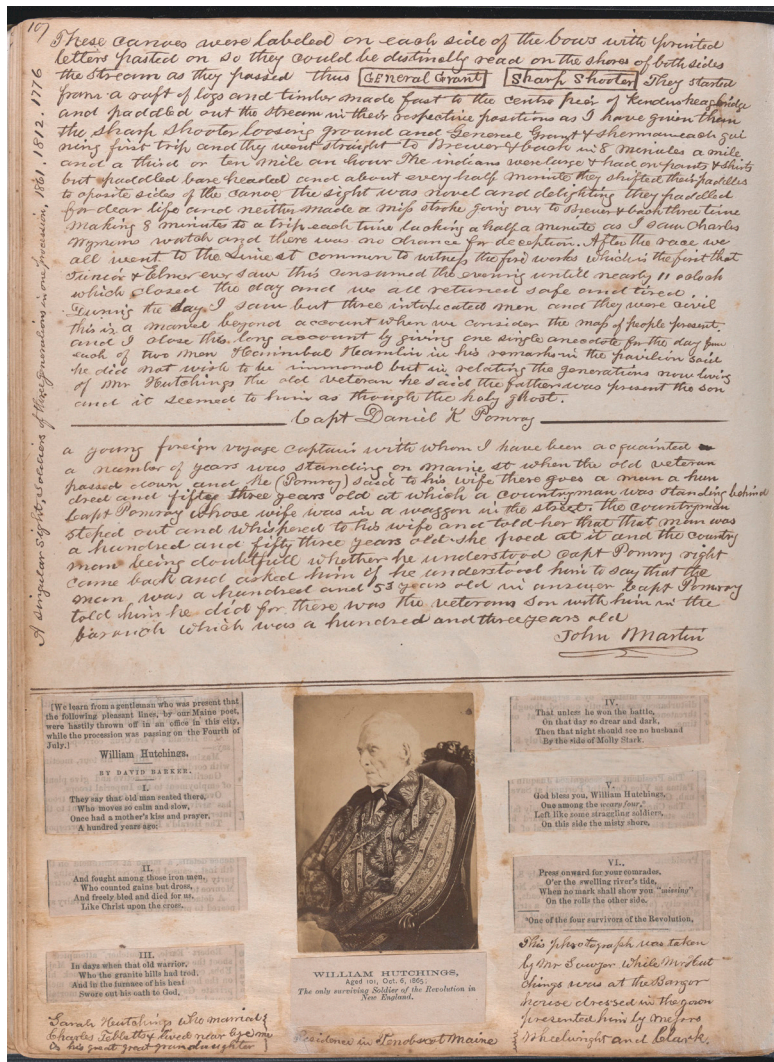 107
These canoes were labeled on each side of the bows with printed
letters pasted on so they could be distinctly read on the shores of both sides
the stream as they passed thus General Grant Sharp Shooter They started
from a raft of logs and timber made fast to the centre pier of Kenduskeag bridge
and paddled out the stream in their respective positions as I have given them
the Sharp Shooter loosing ground and General Grant & Sherman each gai
ning first trip and they went straight to Brewer & back in 8 minutes a mile
and a third or ten mile an hour The indians were large & had on pants & shirts
but paddled bare headed and about every half minute they shifted their paddles
to oposite sides of the canoe the sight was novel and delighting they paddled
for dear life and neither made a miss stroke going over to Brewer & back three time
making 8 minutes to a trip each time lacking a half a minute as I saw Charles
watch and there was no chance for deception. After the race we
all went to the st common to witness the fire works which is the first that
Junior & Elmer ever saw this consumed the evening untill nearly 11 oclock
which closed the day and we all returned safe and tired
During the day I saw but three intoxicated men and they were civil
this is a marvel beyond account when we consider the mass of people present.
and I close this long account by giving one single anecdote for the day from
each of two men Hannibal Hamlin in his remarks in the pavilion said
he did not wish to be immoral but in relating the generations now living
of Mr Hutchings the old veteran he said the father was present the son
and it seemed to him as though the holy ghost.
Capt Daniel K Pomroy
a young foreign voyage captain with whom I have been acquainted
a number of years was standing on Maine st when the old veteran
passed down and he (Pomroy) said to his wife there goes a man a hun
dred and fifty three years old at which a countryman was standing behind
Capt Pomroy whose wife was in a waggon in the street. the countryman
steped out and whispered to his wife and told her that that man was
a hundred and fifty three years old she at it and the country
man being doubtfull whether he understood Capt Pomroy right
came back and asked him if he understood him to say that the
man was a hundred and 53 years old in answer Capt Pomroy
told him he did for there was the veterans son with him in the
barouch which was a hundred and three years old
John Martin
A singular sight, soldiers of three generations in one procession, 1861. 1812. 1776
[We learn from a gentleman who was present that
the following pleasant lines, by our Maine poet,
were hastily thrown off in an office in this city,
while the procession was passing on the Fourth of
July.]
William Hutchings.
BY DAVID BARKER.
I.
They say that old man seated there,
Who moves so calm and slow,
Once had a mother's kiss and prayer,
A hundred years ago:
II.
And fought among those iron men,
Who counted gains but dross,
And freely bled and died for us,
Like Christ upon the cross.
III.
In days when that old warrior,
Who the granite hills had trod,
And in the furnace of his heat
Swore out his oath to God,
Sarah Hutchings who married
Charles & lived near by me
is his great great grandaughter
WILLIAM HUTCHINGS,
Aged 101, Oct. 6, 1865;
The only surviving Soldier of the Revolution in
New England.
Residence in Penobscot Maine
IV.
That unless he won the battle,
On that day so drear and dark,
Then that night should see no husband
By the side of Molly Stark.
V.
God bless you, William Hutchings,
One among the worn four,*
Left like some straggling soldiers,
On this side the misty shore,
VI.,
Press onward for your comrades,
O'er the swelling river's tide,
When no mark shall show you "missing"
On the rolls the other side.
*One of the four survivors of the Revolution.
This photograph was taken
by Mr Sawyer while Mr Hut
chings was at the Bangor
house dressed in the gown
presented him by messrs
Wheelwright and Clark.